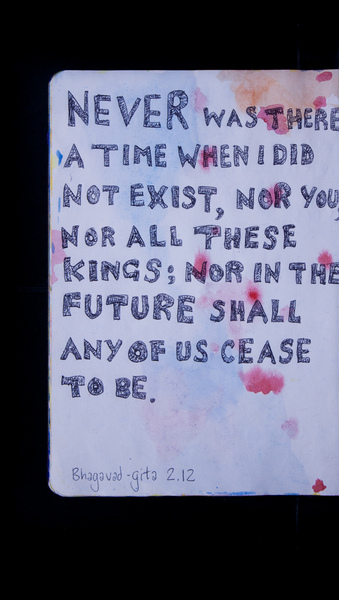 NEVER WAS THERE
A TIME WHEN I DID
NOT EXIST, NOR YOU,
NOR ALL THESE
KINGS; NOR IN THE
FUTURE SHALL
ANY OF US CEASE
TO BE.
Bhagavad-gita 2.12